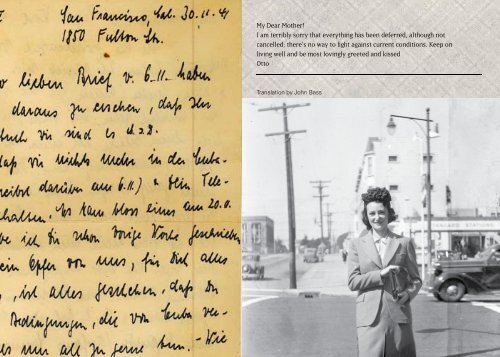 San Francisco, Cal. 30.11.41
1850 Fulton Str.
lieben Brief v. 6.11. haben
daraus zu ersehen, daß Ihr
wir sind es
daß wir nichts mehr in der Cuba-
reibst darüber am 6.11.) Dein Tele-
halten. Es kam bloss eines am
ich Dir schon vorige Woche geschrieben
ein Opfer von uns, für Dich alles
, ist alles geschehen, daß Du
Bedingungen, die von Cuba ver-
all zu gerne tun. - Wie
My Dear Mother!
I am terribly sorry that everything has been deferred, although not
cancelled; there's no way to fight against current conditions. Keep on
living well and be most lovingly greeted and kissed
Otto
Translation by John Bass
STATIONS